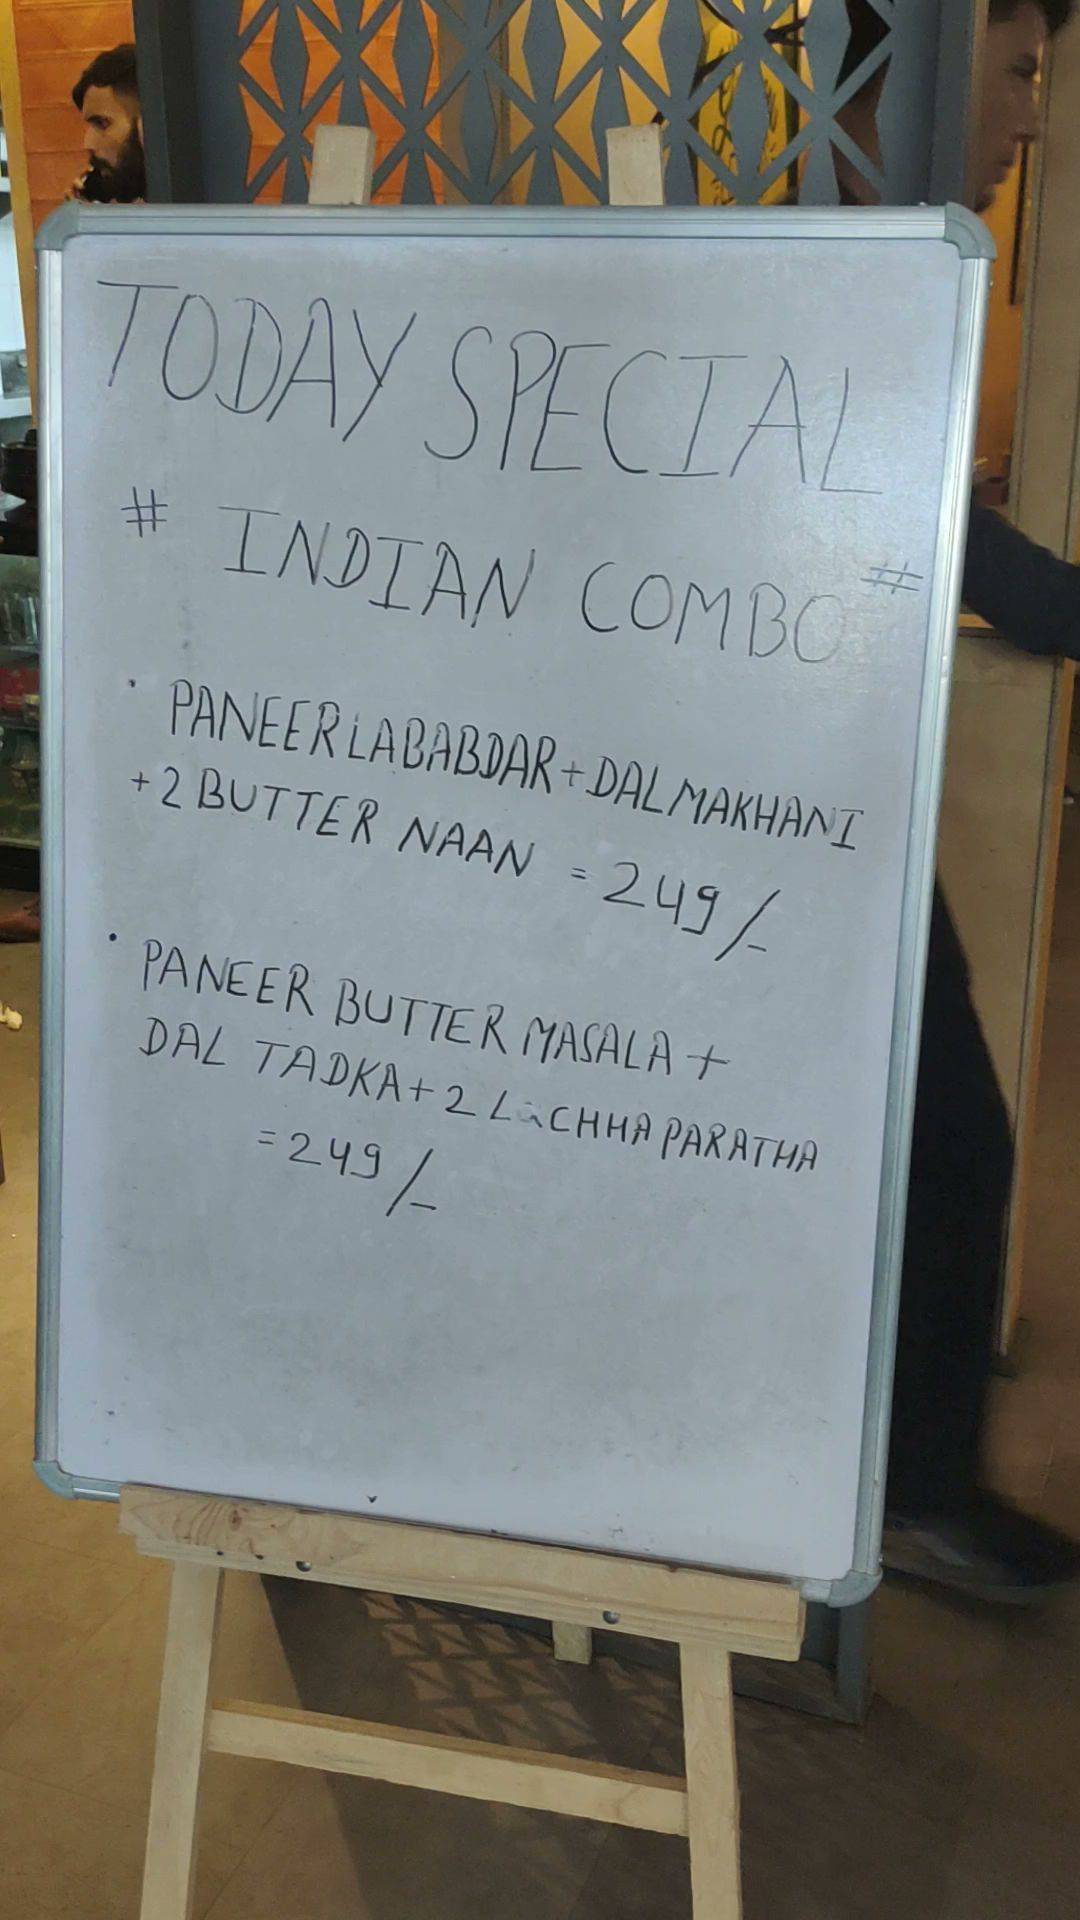 TODAY SPECIAL
# INDIAN COMBO #
· PANEER LABABDAR + DAL MAKHANI
+ 2 BUTTER NAAN = 249/-
· PANEER BUTTER MASALA +
DAL TADKA + 2 LaCHHA PARATHA
= 249/-